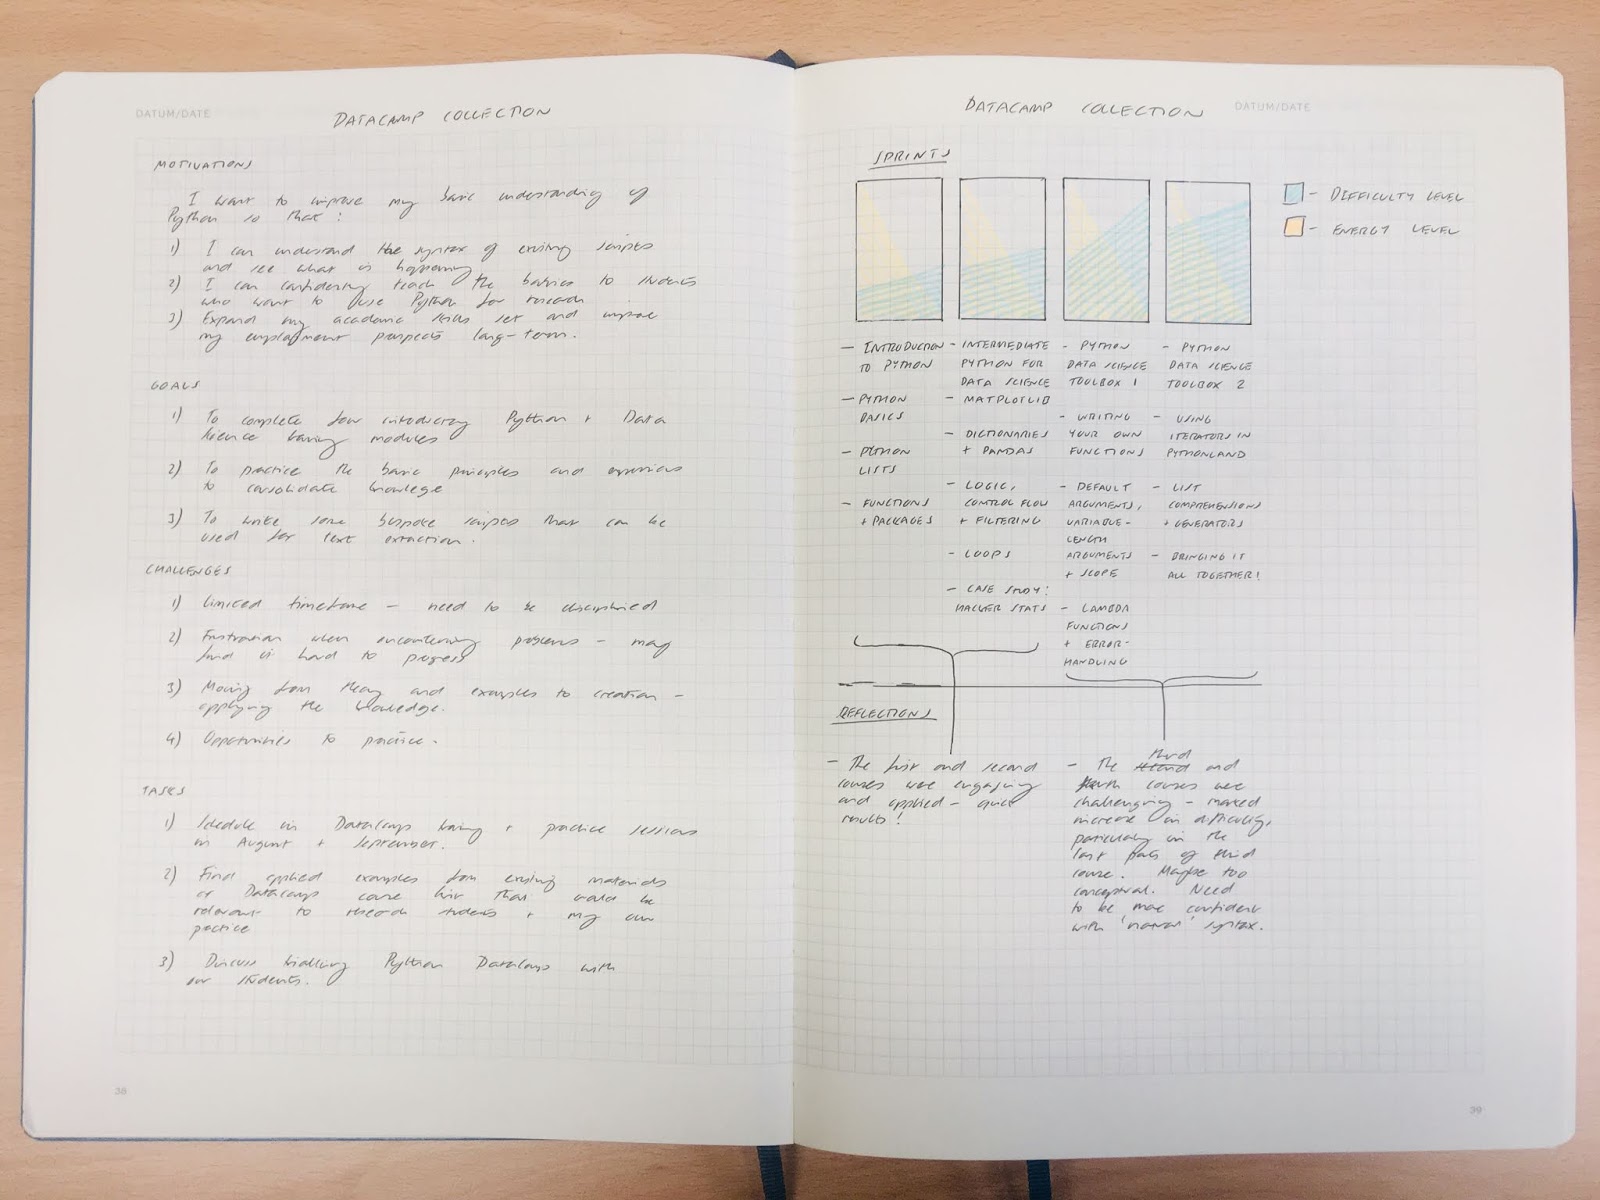 DATUM/DATE
DATACAMP COLLECTION
MOTIVATIONS
I want to improve my basic understanding of
Python so that:
1) I can understand the syntax of existing scripts
and see what is happening
2) I can confidently teach the basics to students
who want to use Python for research
3) Expand my academic skills set and improve
my employment prospects long-term.
GOALS
1) To complete four introductory Python + Data
Science training modules
2) To practice the basic principles and exercises
to consolidate knowlege
3) To write some bespoke scripts that can be
used for text extraction.
CHALLENGES
1) Limited timeframe - need to be disciplined
2) Frustration when encountering problems - may
find it hard to progress
3) Moving from theory and examples to creation -
applying the knowledge.
4) Opportunities to practice.
TASKS
1) Schedule in DataCamp training + practice sessions
in August + September.
2) Find applied examples from existing materials
or DataCamp course list that would be
relevant to research students + my own
practice
3) Discuss trialling Python DataCamp with
our students.
38
DATACAMP COLLECTION
DATUM/DATE
SPRINTS
- DIFFICULTY LEVEL
- ENERGY LEVEL
- INTRODUCTION
TO PYTHON
- PYTHON
BASICS
- PYTHON
LISTS
- FUNCTIONS
+ PACKAGES
- INTERMEDIATE
PYTHON FOR
DATA SCIENCE
- MATPLOTLIB
- DICTIONARIES
+ PANDAS
- LOGIC,
CONTROL FLOW
+ FILTERING
- LOOPS
- CASE STUDY:
HACKER STATS
- PYTHON
DATA SCIENCE
TOOLBOX 1
- WRITING
YOUR OWN
FUNCTIONS
- DEFAULT
ARGUMENTS,
VARIABLE-
LENGTH
ARGUMENTS
+ SCOPE
- LAMBDA
FUNCTIONS
+ ERROR-
HANDLING
- PYTHON
DATA SCIENCE
TOOLBOX 2
- USING
ITERATORS IN
PYTHONLAND
- LIST
COMPREHENSIONS
+ GENERATORS
- BRINGING IT
ALL TOGETHER!
REFLECTIONS
- The first and second
courses were engaging
and applied - quick
results!
- The third and
fourth courses were
challenging - marked
increase in difficulty,
particularly in the
last parts of third
course. Maybe too
conceptual. Need
to be more confident
with 'normal' syntax.
39